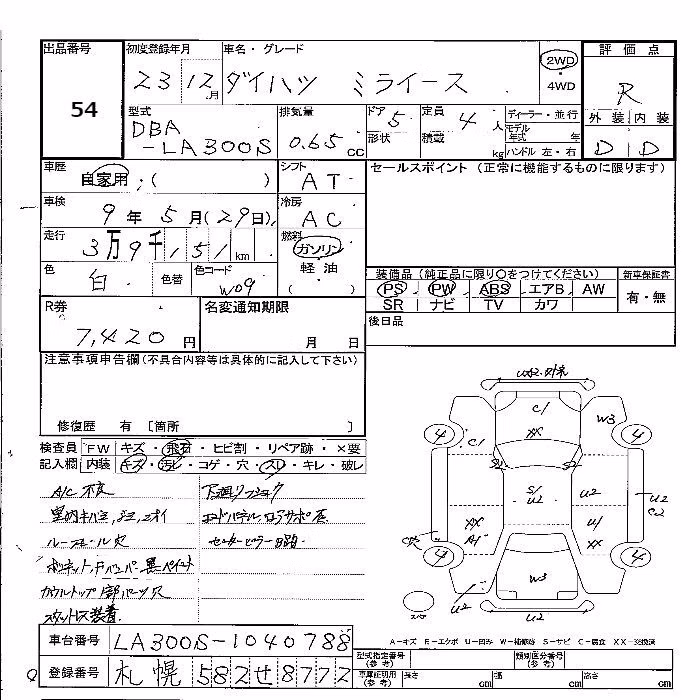 出品番号
54
初度登録年月
23 12月
車名・グレード
ダイハツ ミライース
2WD
・
4WD
評価点
R
外装 内装
D D
型式
DBA
-LA300S
排気量
0.65 cc
ドア 5
形状
定員 4 人
積載 kg
ディーラー・並行
モデル
年式 年
ハンドル 左・右
車歴
自家用 ; ( )
シフト
AT
セールスポイント (正常に機能するものに限ります)
車検
9 年 5 月 (29日)
冷房
AC
走行
3万9千151 km
燃料
ガソリン
軽油
( )
色
白
色替
色コード
W09
装備品 (純正品に限り○をつけてください)
新車保証書
PS PW ABS エアB AW
SR ナビ TV カワ
有・無
R券
7,420円
名変通知期限
月 日
後日品
注意事項申告欄 (不具合内容等は具体的に記入して下さい)
修復歴 有 [箇所 ]
検査員
記入欄
FW キズ・飛石・ヒビ割・リペア跡・×要
内装 キズ・汚レ・コゲ・穴・スレ・キレ・破レ
A/C 不良
室内キバミ、シミ、ニオイ
下廻りフショク
スタットレス装着
C1
XX
W3
4
C1
4
S2
S2
S1
U2
U2
U2
C2
XX
A1
U1
XX
4
W3
4
U2
U2
A-キズ E-エクボ U-凹み W-補修跡 S-サビ C-腐食 XX-交換済
車台番号
LA300S-1040788
登録番号
札幌 582せ8772
型式指定番号
(参考)
類別区分番号
(参考)
車庫証明用
(参考)
長さ cm
幅 cm
高さ cm